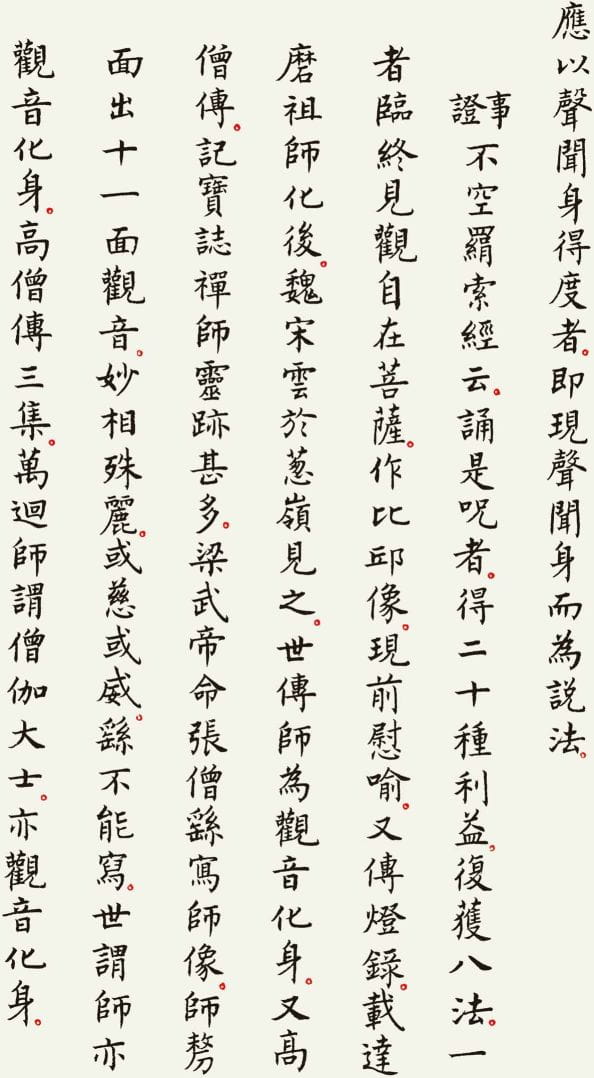 應以聲聞身得度者。即現聲聞身而為說法。
事證 不空羂索經云。誦是呪者。得二十種利益。復獲八法。一
者臨終見觀自在菩薩。作比邱像。現前慰喻。又傳燈錄。載達
磨祖師化後。魏宋雲於葱嶺見之。世傳師為觀音化身。又高
僧傳。記寶誌禪師靈跡甚多。梁武帝命張僧繇寫師像。師剺
面出十一面觀音。妙相殊麗。或慈或威。繇不能寫。世謂師亦
觀音化身。高僧傳三集。萬迴師謂僧伽大士。亦觀音化身。